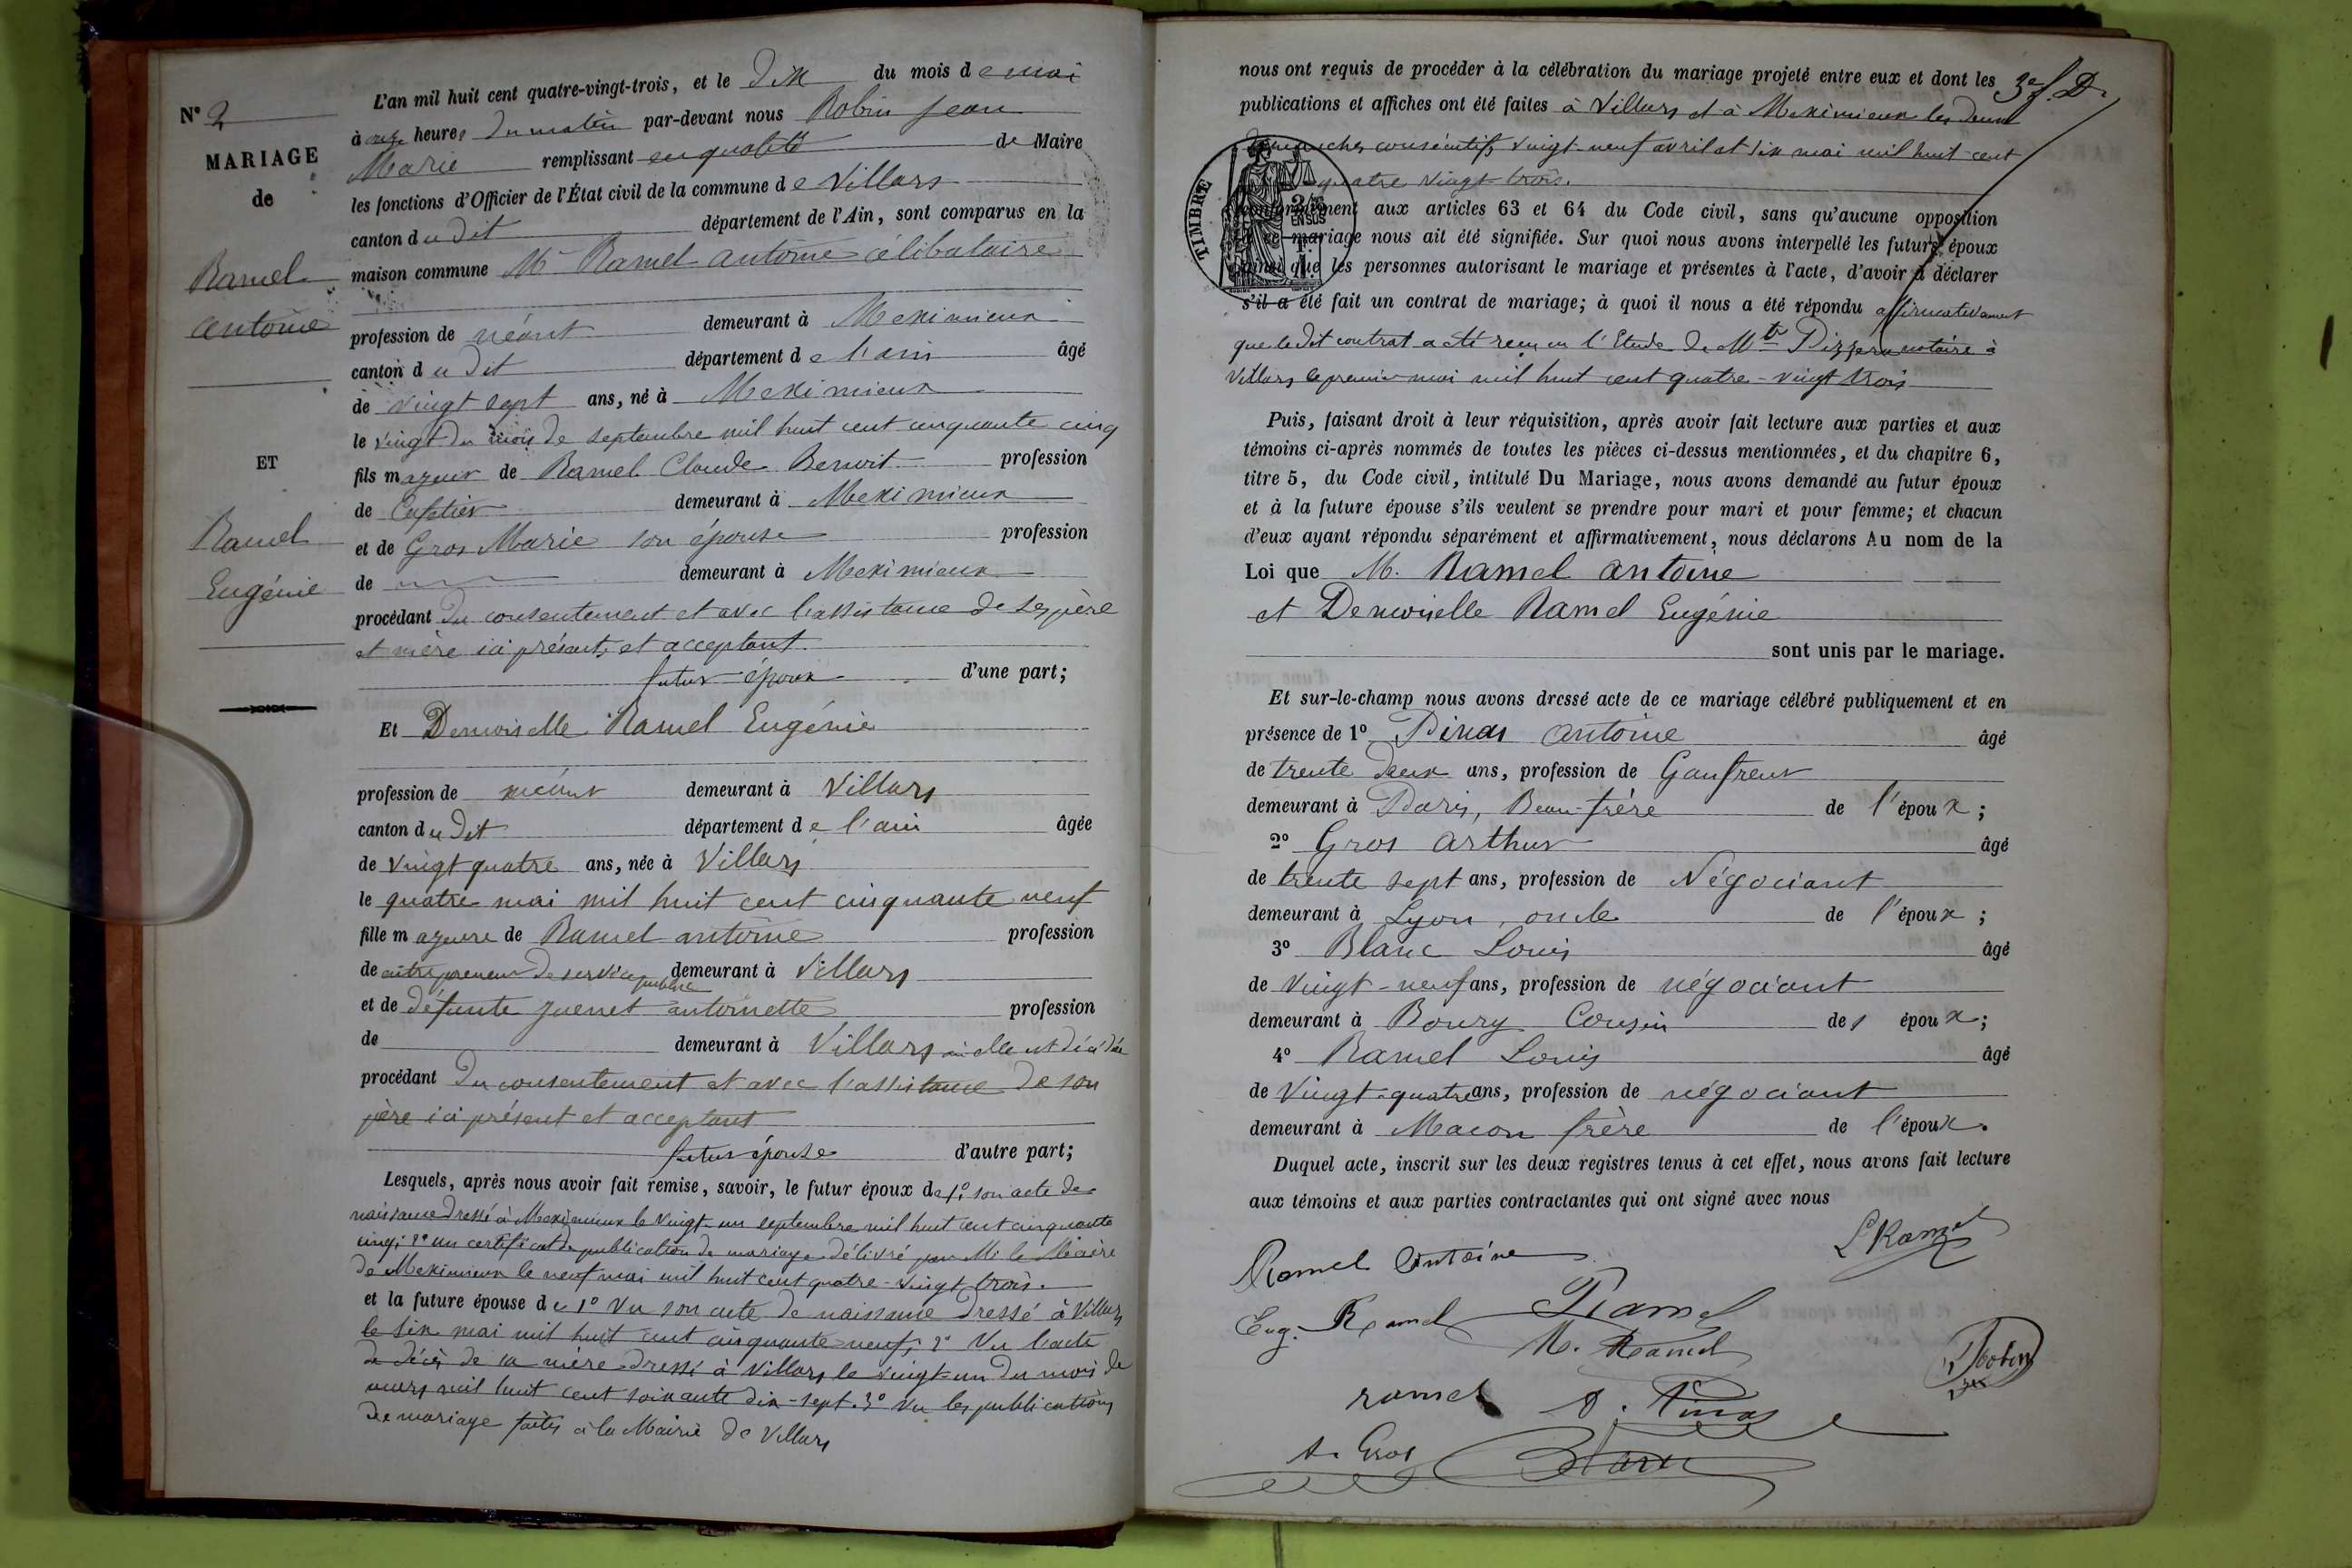 N° 2
MARIAGE
de
Ramel
antoine
ET
Ramel
Eugénie
L'an mil huit cent quatre-vingt-trois, et le dix du mois de mai
à onze heures du matin par-devant nous Robin Jean
Marie remplissant en qualité de Maire
les fonctions d'Officier de l'État civil de la commune de Villars
canton du dit département de l'Ain, sont comparus en la
maison commune Mr Ramel antoine célibataire
profession de néant demeurant à Meximieux
canton du dit département de l'ain âgé
de vingt sept ans, né à Meximieux
le vingt du mois de septembre mil huit cent cinquante cinq
fils majeur de Ramel Claude Benoit profession
de Cafetier demeurant à Meximieux
et de Gros Marie son épouse profession
de demeurant à Meximieux
procédant du consentement et avec l'assistance de ses père
et mère ici présents et acceptant.
futur époux d'une part;
Et Demoiselle Ramel Eugénie
profession de néant demeurant à Villars
canton du dit département de l'ain âgée
de vingt quatre ans, née à Villars
le quatre mai mil huit cent cinquante neuf
fille majeure de Ramel antoine profession
de entrepreneur de service public demeurant à Villars
et de défunte Juenet antoinette profession
de demeurant à Villars où elle est décédée
procédant du consentement et avec l'assistance de son
père ici présent et acceptant
futur épouse d'autre part;
Lesquels, après nous avoir fait remise, savoir, le futur époux de 1° son acte de
naissance dressé à Meximieux le vingt-un septembre mil huit cent cinquante
cinq; 2° un certificat de publication de mariage délivré par Mr le Maire
de Meximieux le neuf mai mil huit cent quatre-vingt trois.
et la future épouse de 1° Vu son acte de naissance dressé à Villars
le six mai mil huit cent cinquante neuf; 2° Vu l'acte
de décès de sa mère dressé à Villars le vingt-un du mois de
mars mil huit cent soixante dix-sept. 3° Vu les publications
de mariage faites à la Mairie de Villars
nous ont requis de procéder à la célébration du mariage projeté entre eux et dont les
3e f. D.
publications et affiches ont été faites à Villars et à Meximieux les deux
dimanches consécutifs vingt-neuf avril et six mai mil huit cent
quatre vingt-trois.
TIMBRE
2/10 EN SUS
conformément aux articles 63 et 64 du Code civil, sans qu'aucune opposition
à ce mariage nous ait été signifiée. Sur quoi nous avons interpellé les futurs époux
ainsi que les personnes autorisant le mariage et présentes à l'acte, d'avoir à déclarer
s'il a été fait un contrat de mariage; à quoi il nous a été répondu affirmativement
que le dit contrat a été reçu en l'Etude de Mtre notaire à
Villars le premier mai mil huit cent quatre-vingt trois
Puis, faisant droit à leur réquisition, après avoir fait lecture aux parties et aux
témoins ci-après nommés de toutes les pièces ci-dessus mentionnées, et du chapitre 6,
titre 5, du Code civil, intitulé Du Mariage, nous avons demandé au futur époux
et à la future épouse s'ils veulent se prendre pour mari et pour femme; et chacun
d'eux ayant répondu séparément et affirmativement, nous déclarons Au nom de la
Loi que M. Ramel antoine
et Demoiselle Ramel Eugénie
sont unis par le mariage.
Et sur-le-champ nous avons dressé acte de ce mariage célébré publiquement et en
présence de 1° Pinas antoine âgé
de trente deux ans, profession de Gaufreur
demeurant à Paris, Beau-frère de l'époux;
2° Gros arthur âgé
de trente sept ans, profession de Négociant
demeurant à Lyon, oncle de l'époux;
3° Blanc Louis âgé
de vingt-neuf ans, profession de négociant
demeurant à Bourg Cousin des époux;
4° Ramel Louis âgé
de vingt-quatre ans, profession de négociant
demeurant à Macon frère de l'époux.
Duquel acte, inscrit sur les deux registres tenus à cet effet, nous avons fait lecture
aux témoins et aux parties contractantes qui ont signé avec nous
L Ramel
Ramel Antoine
Eug. Ramel Ramel
M. Ramel
Robin
ramel A. Pinas
A. Gros Blanc